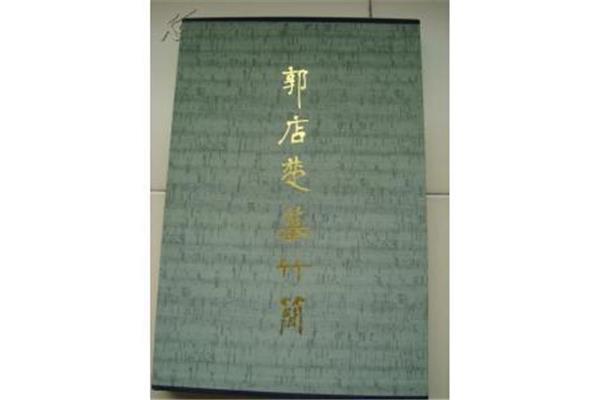 郭店楚墓竹簡